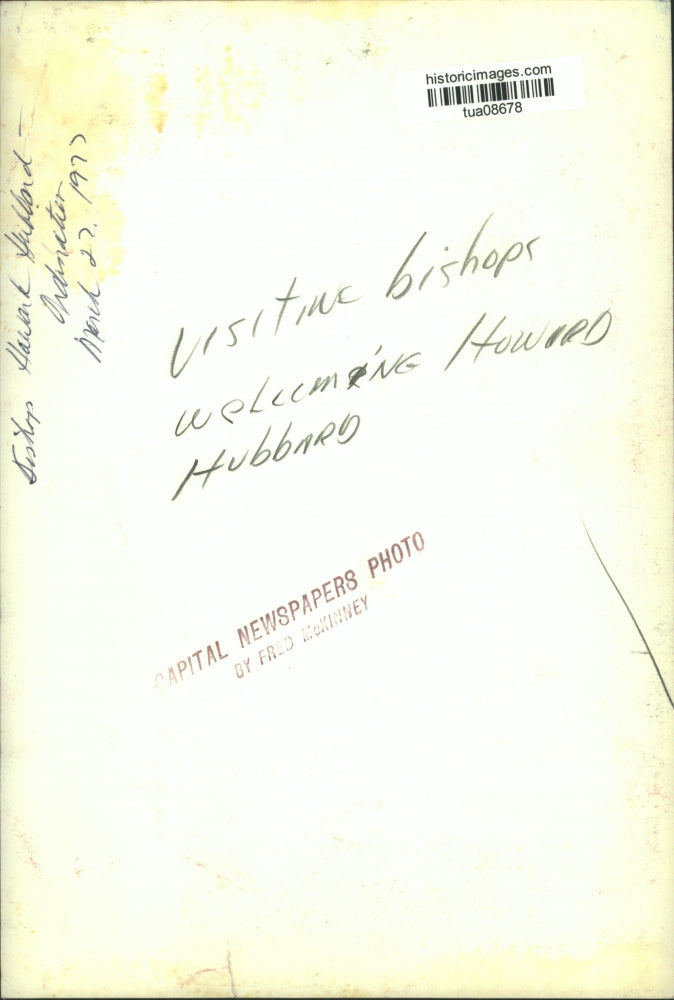 historicimages.com
tua08678
Bishop Howard Hubbard –
Ordination
March 27, 1977
Visiting bishops
welcoming Howard
Hubbard
CAPITAL NEWSPAPERS PHOTO
BY FRED McKINNEY